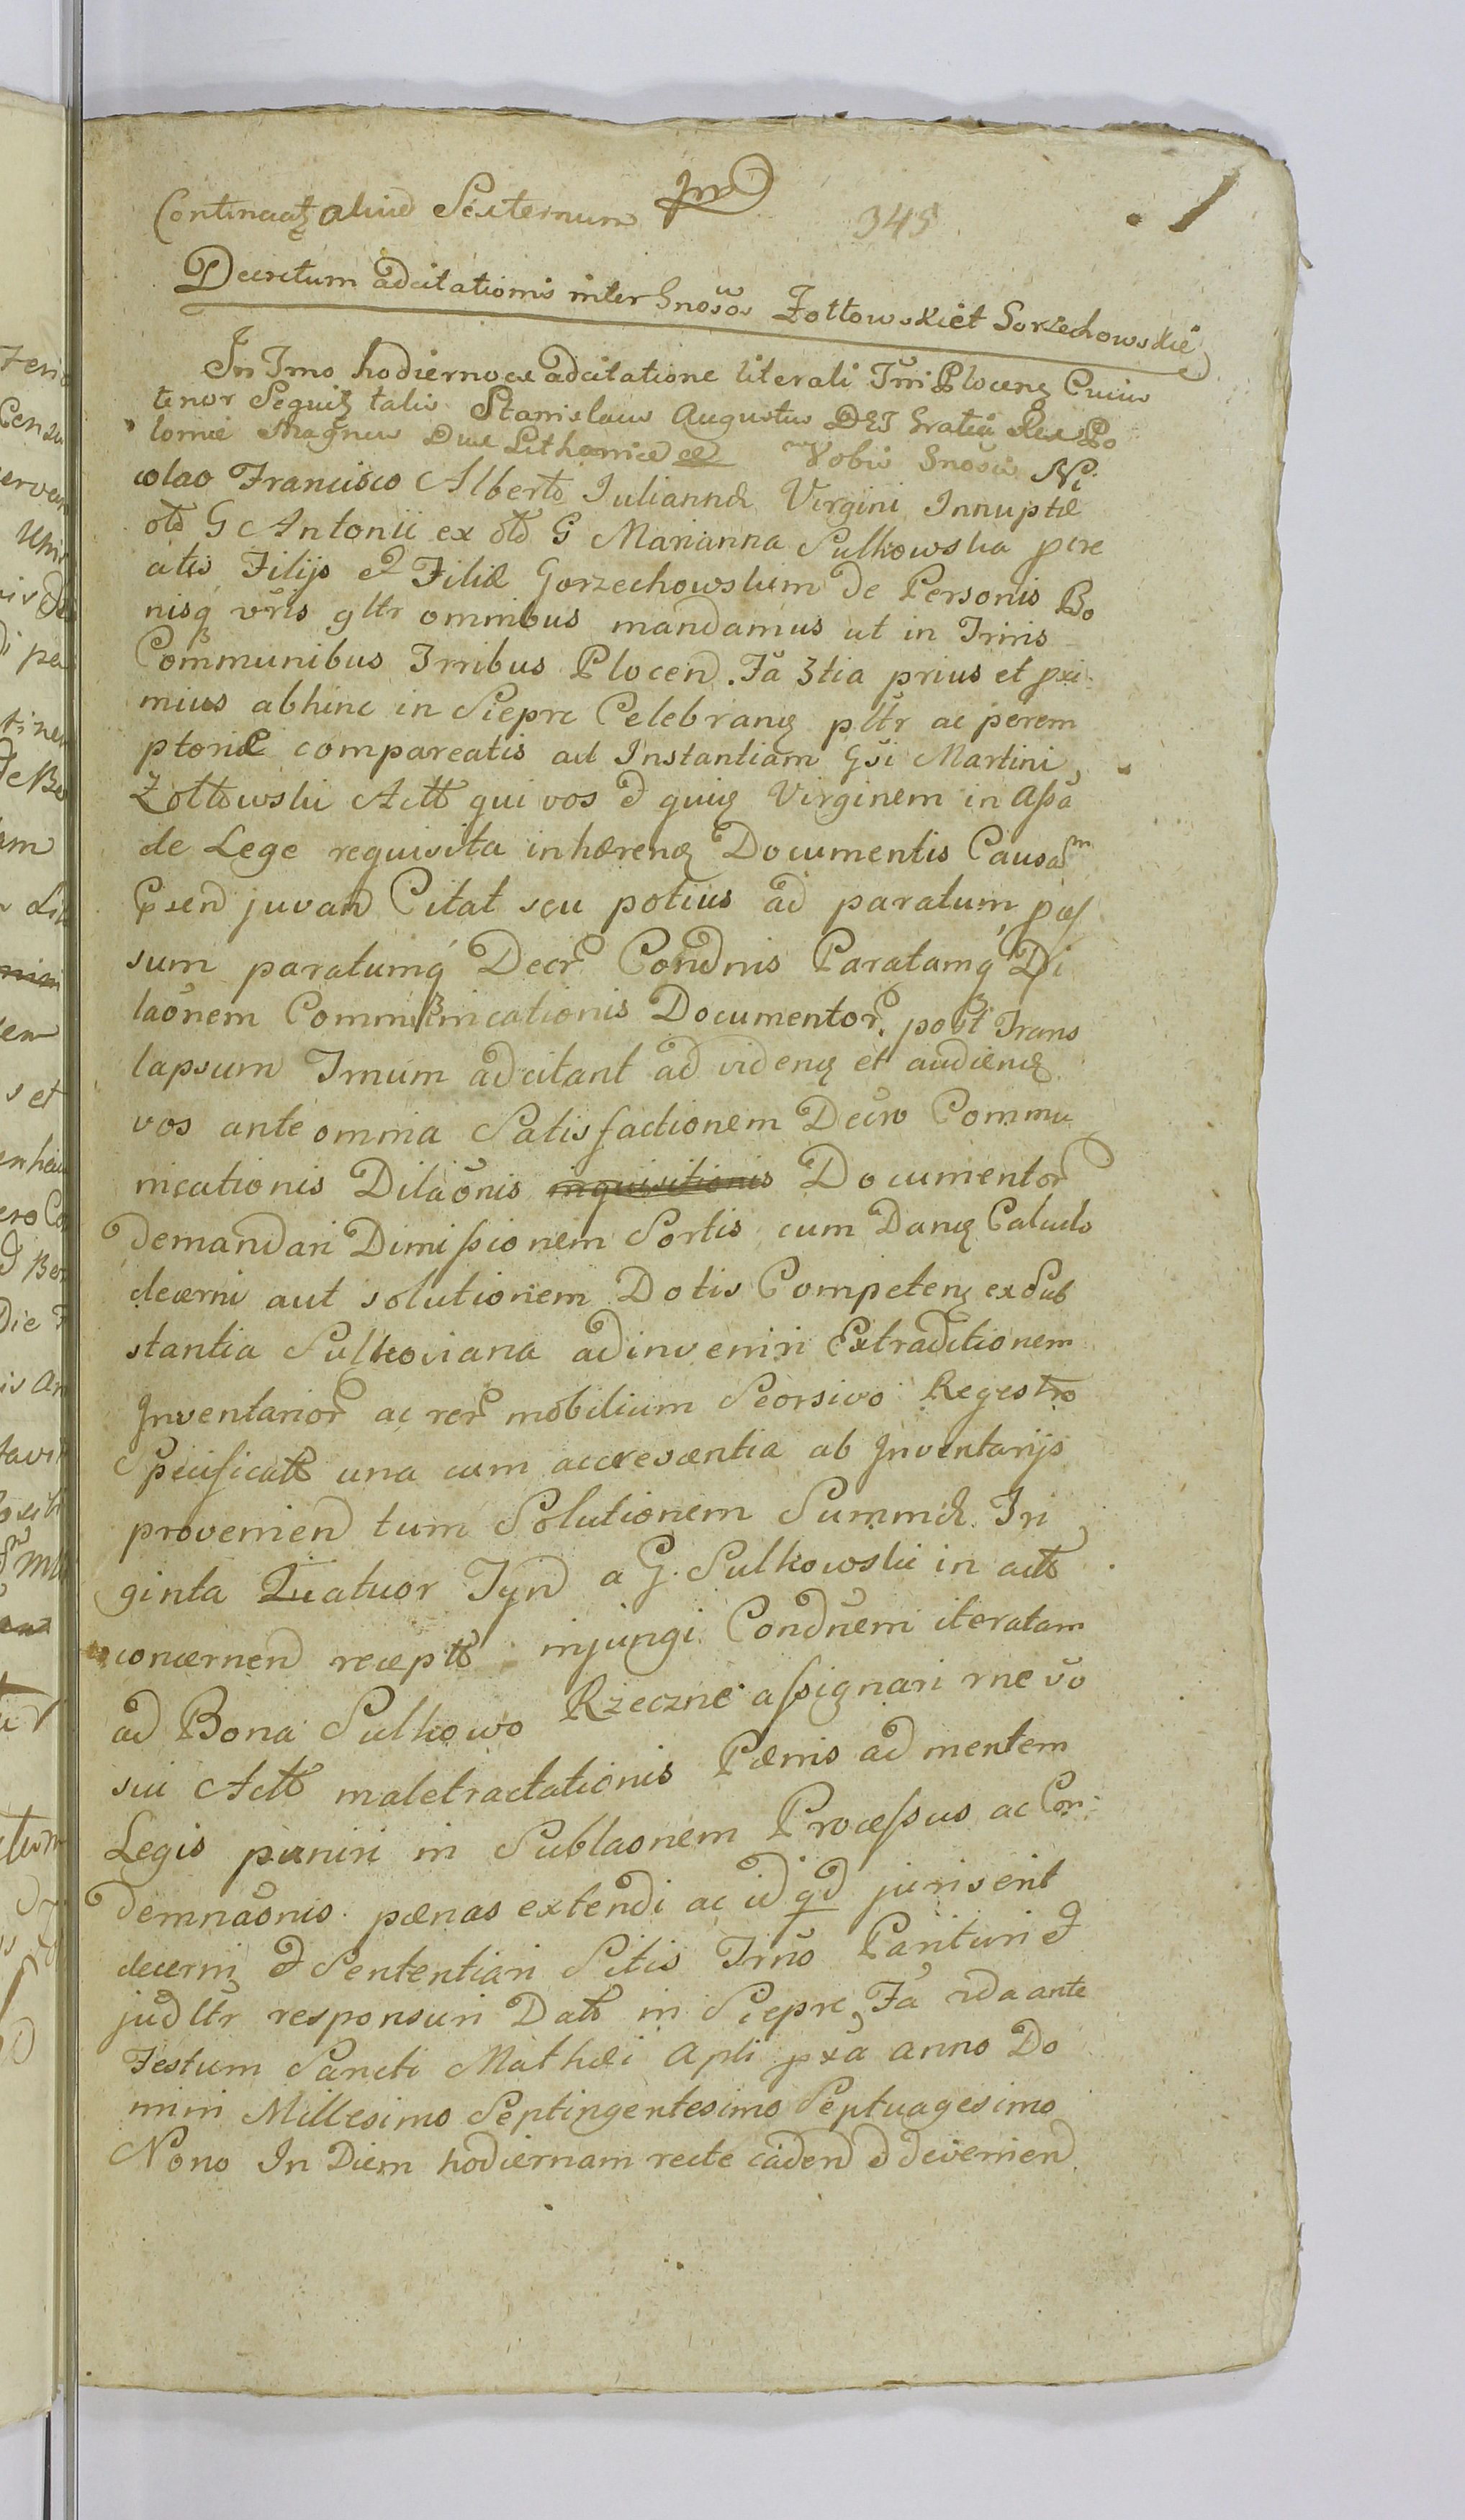 Continuatȝ aliud Sexternum
345
Decretum adcitationis inter Gnosos Zołtowski et Gorzechowskie
In Trno hodierno ex adcitatione literali Trri Plocens Cuius
tenor Sequitȝ talis Stanislaus Augustus DEI Gratia Rex Po
loniæ Magnus Dux Lithaniæ &c Vobis Gnosis Ni
colao Francisco Alberto Juliannæ Virgini Innuptæ
otd G Antonii ex otd G Marianna Sulkowska pcre
atis Filijs et Filiæ Gorzechowskim de Personis Bo
nisq vris gltr omnibus mandamus ut in Trnis
Communibus Trribus Plocen. Fa 3tia prius et pxi
mius abhinc in Sieprc Celebranȝ pltr ac perem
ptoriæ compareatis ad Instantiam Gsi Martini
Zołtowski Actt qui vos et quiȝ Virginem in Assa
de Lege requisita inhærenȝ Documentis Causam
juvand Citat seu potius ad paratum pas
sum paratumq Decr Condnis Paratamq Di
laonem Communicationis Documentor. post Trans
lapsum Trnum adcitant ad videnȝ et audienȝ
vos ante omnia Satisfactionem Decro Commu
nicationis Dilaonis inquisitionis Documentor
demandari Dimissionem Sortis cum Danȝ Calculo
decerni aut solutionem Dotis Competenȝ ex Sub
stantia Sulkoviana adinveniri Extraditionem
Inventarior ac rer mobilium Seorsivo Regestro
Specificatt una cum accrescentia ab Inventarijs
provenien tum Solutionem Summæ Tri
ginta Quatuor Tyn a G. Sulkowski in actt
concernen receptt injungi Condnem iteratam
ad Bona Sulkowo Rzeczne assignari rne vo
sui Actt maletractationis Pænis ad mentem
Legis puniri in Sublaonem Processus ac Con
demnaonis pænas extendi ac id qd juris erit
decerni et Sententiari Sitis Trno Parituri et
judltr responsuri Datt in Sieprc Fa 2da ante
Festum Sancti Mathæi Apli pxa anno Do
mini Millesimo Septingentesimo Septuagesimo
Nono In Diem hodiernam recte caden et devenien